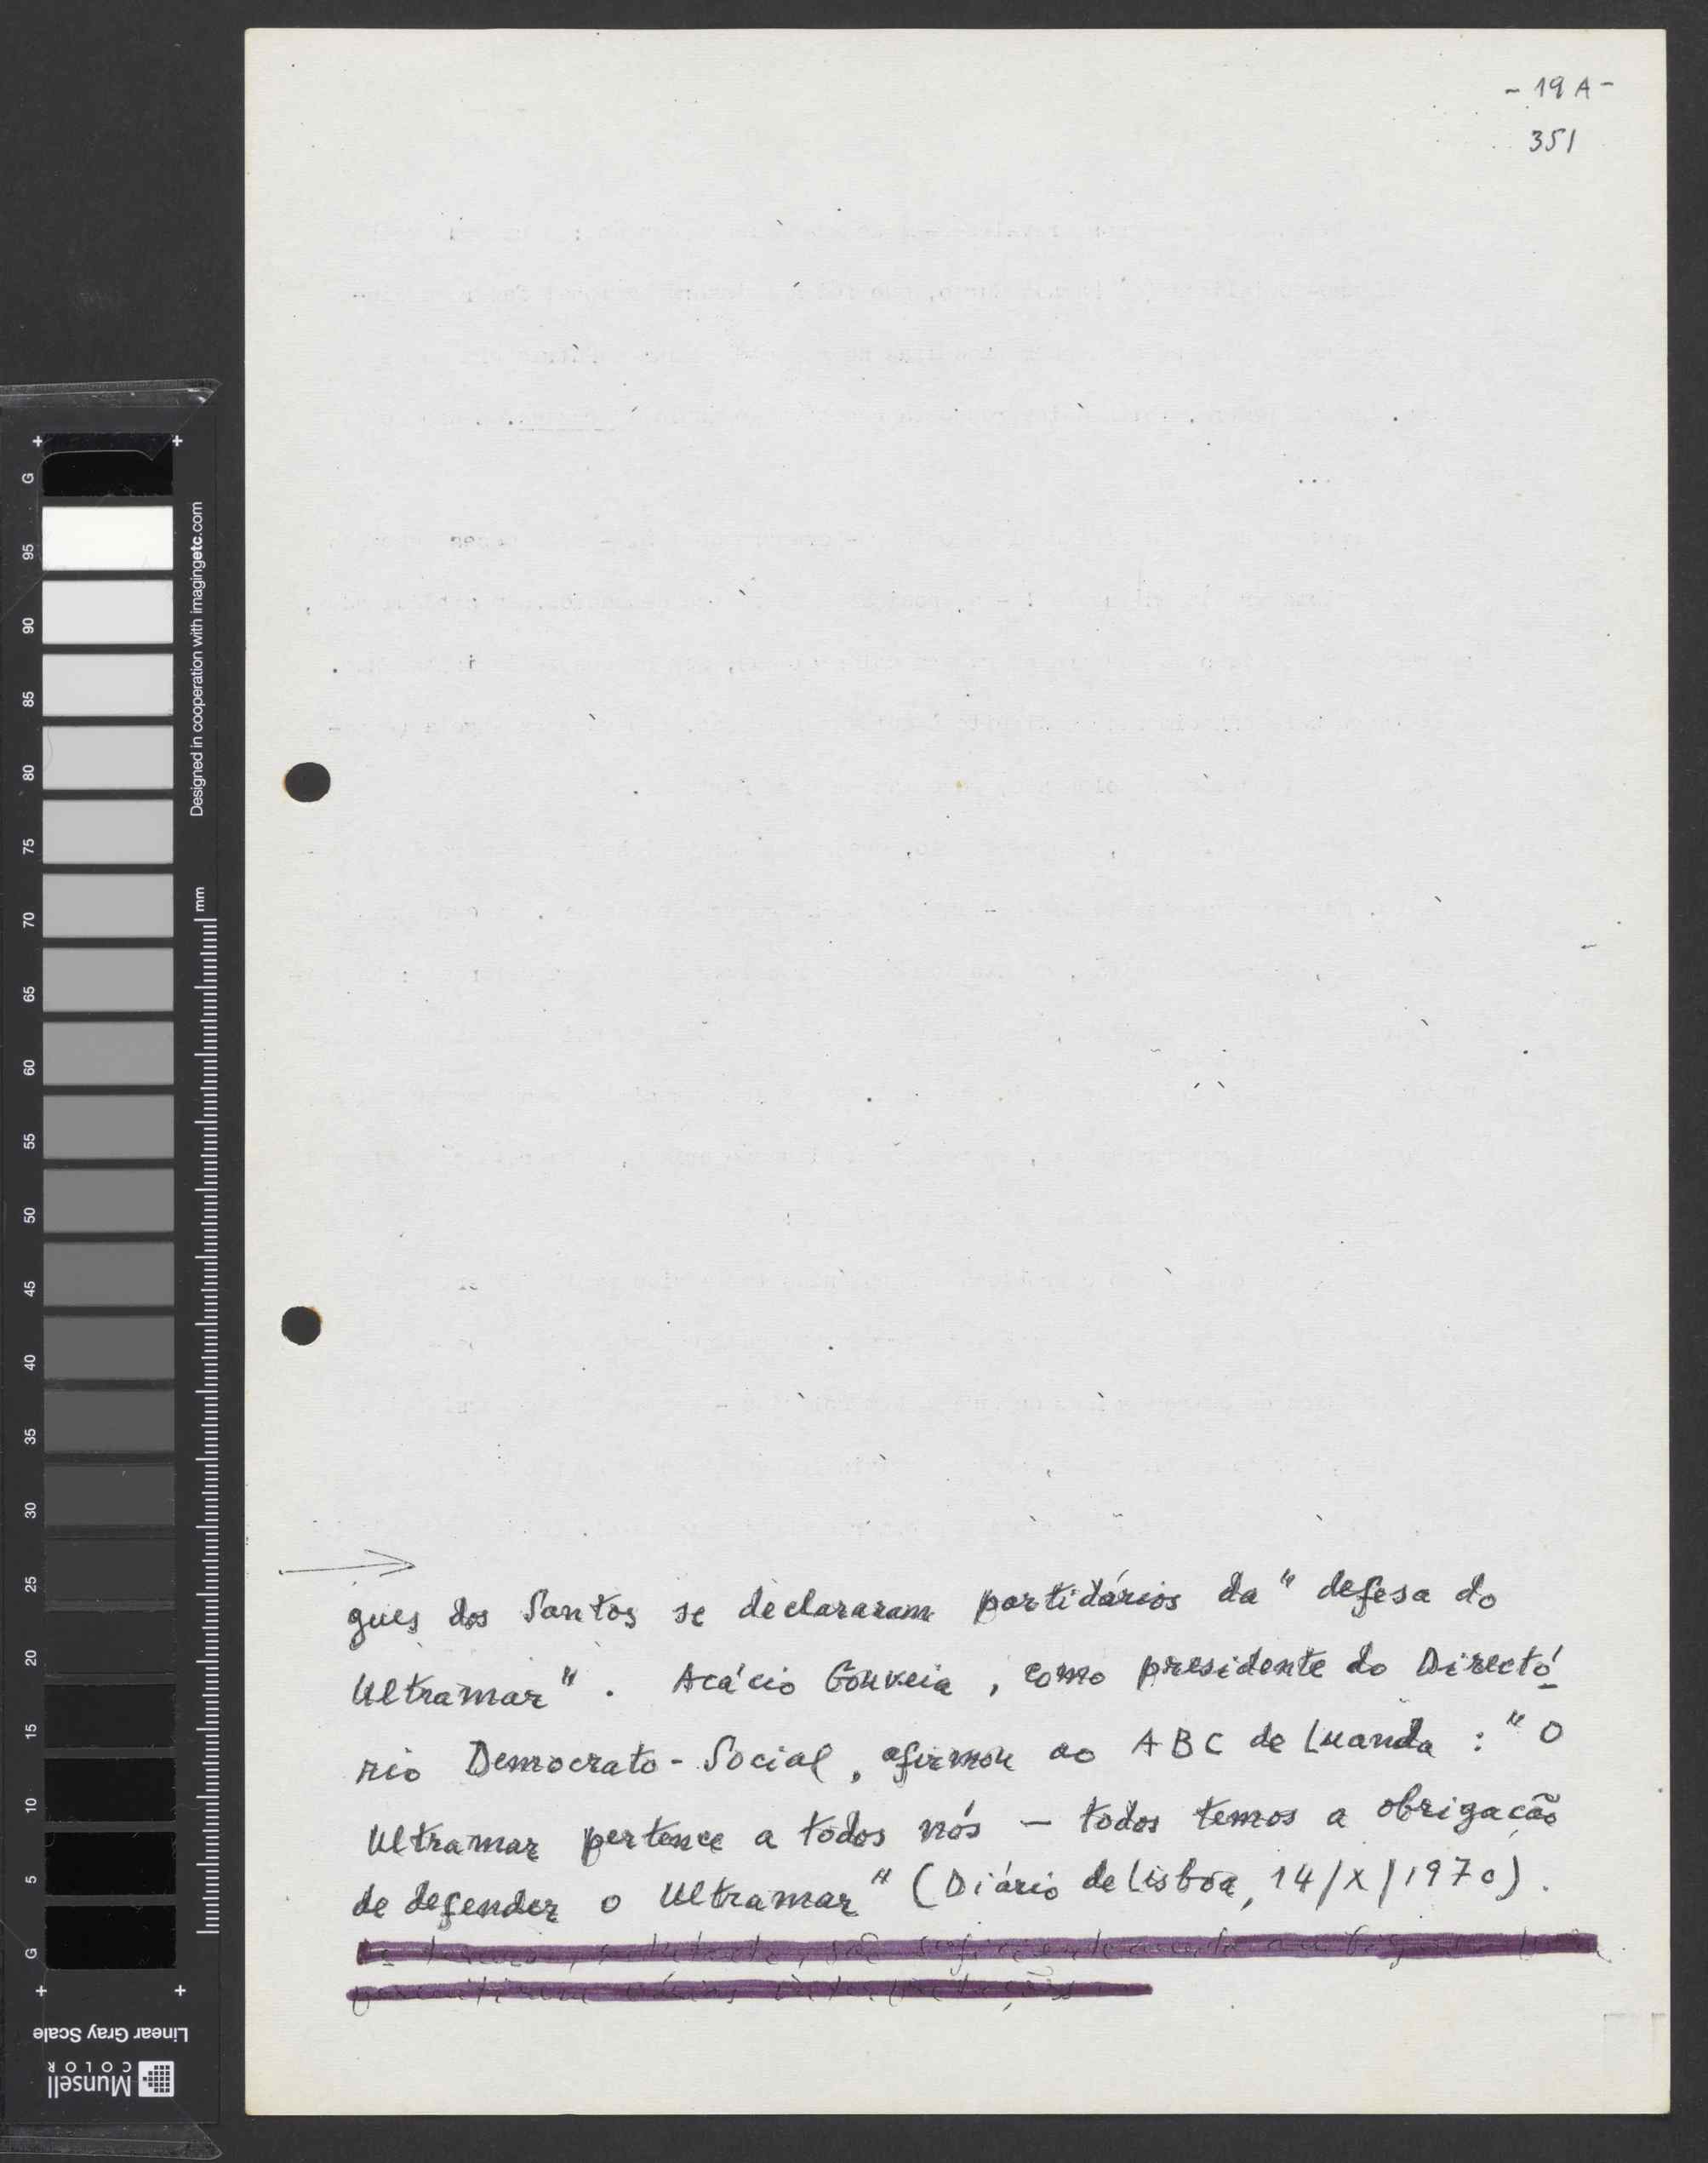 - 19 A -
351
gues dos Santos se declararam partidários da "defesa do
Ultramar". Acácio Gouveia, como presidente do Directó
rio Democrato-Social, afirmou ao ABC de Luanda: "O
Ultramar pertence a todos nós — todos temos a obrigação
de defender o Ultramar" (Diário de Lisboa, 14/X/1970).
são suficientemente
permitirem várias interpretações
Designed in cooperation with imagingetc.com
mm
G
95
90
85
80
75
70
65
60
55
50
45
40
35
30
25
20
15
10
5
G
Linear Gray Scale
Munsell
COLOR